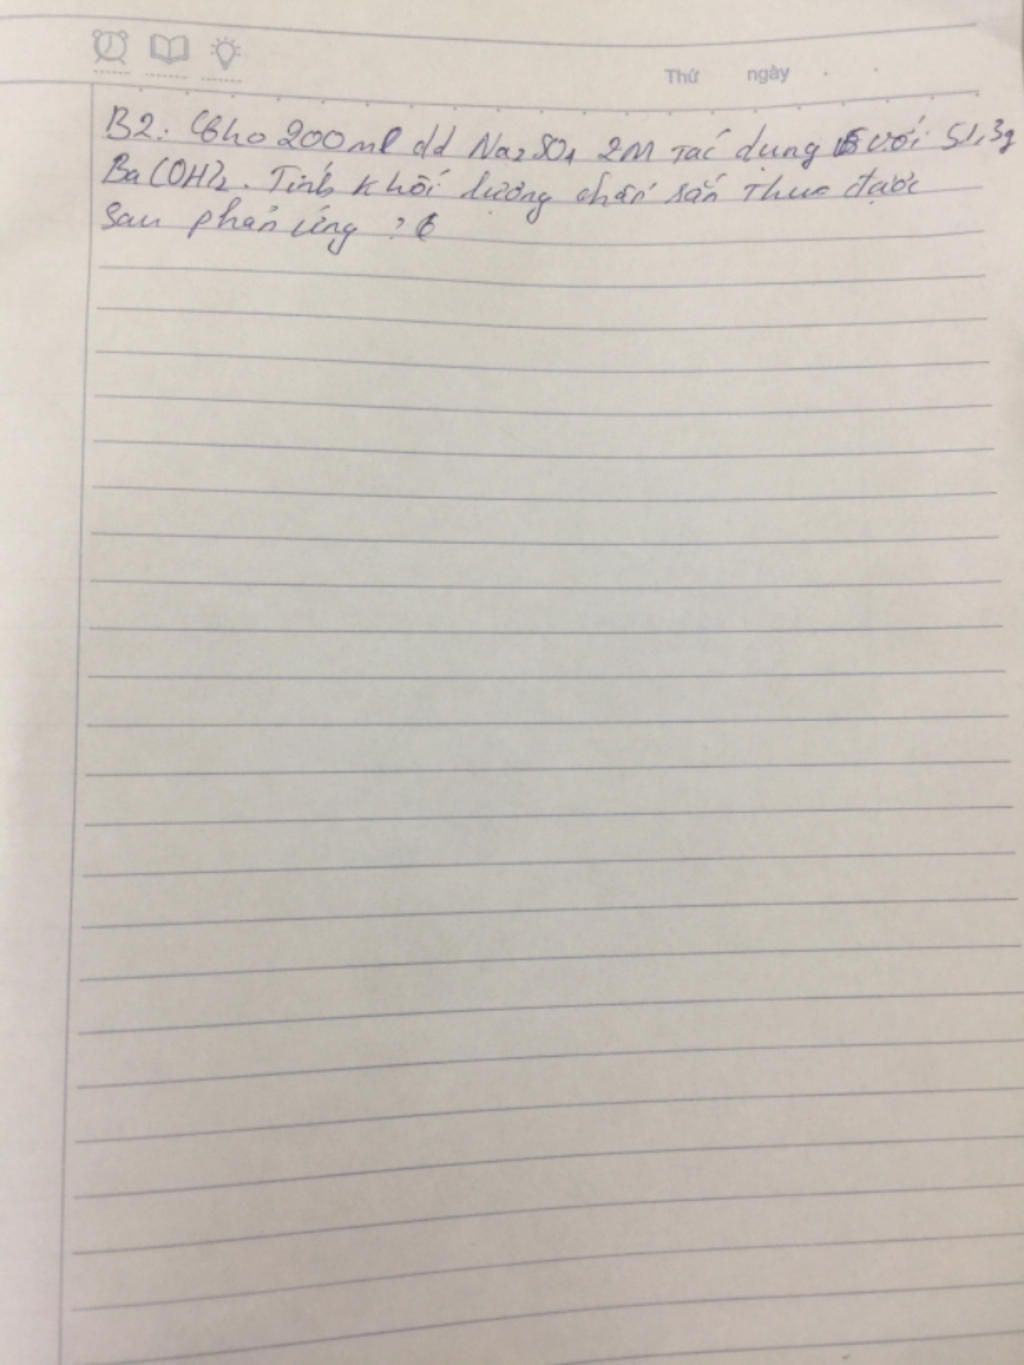 Thứ ngày . .
B2: Cho 200ml dd Na2SO4 2M Tác dụng với 51,3g
Ba(OH)2. Tính khối lượng chất rắn Thu được
sau phản ứng ?